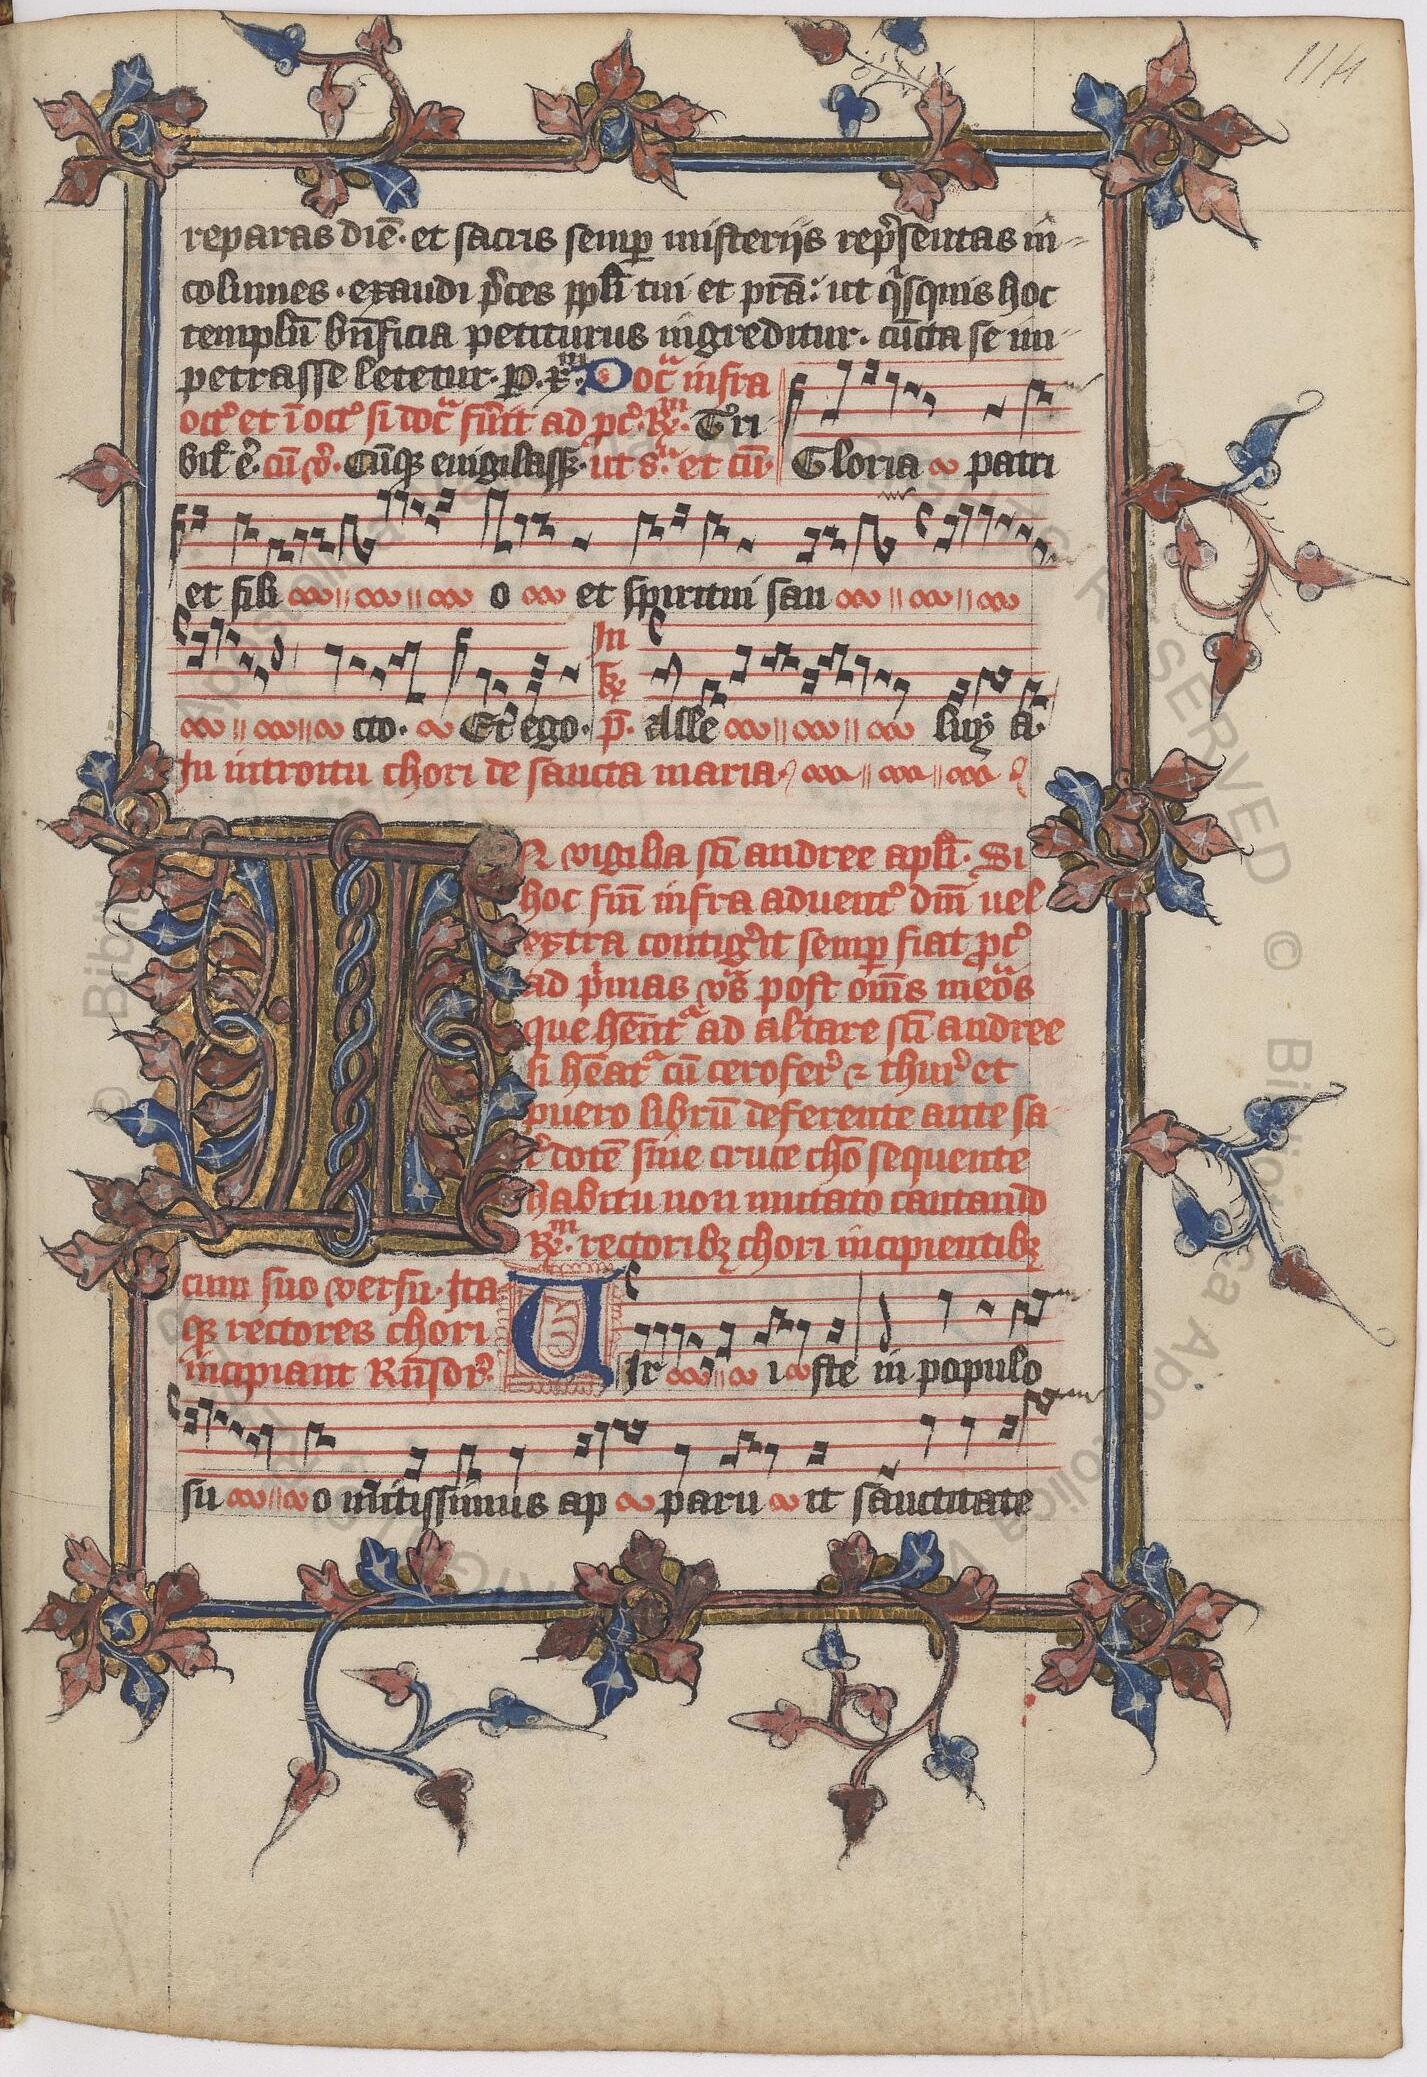 114
reparas diē · et sacris semꝑ misteriis rep̃sentas in-
columnes · exaudi p̃ces ppl̃i tui et pr̃a : ut q̃squis hoc
templū bñficia petiturus ingreditur · cūcta se im-
petrasse letetur · P · xᵐ
infra
Tri
bił ē · cū ꝟ · Cūqꝫ euigilassꝫ · ut sᵃ · et cū · Gloria patri
et fili o et spiritui san
cto · Et ego · In ℟ p̄ · alle luy a ·
In introitu chori de sancta maria ·
N vigilia sc̃i andree apł̃i · Si
hoc fm̃ infra aduent᷒ dñi uel
extra contig̃it semꝑ fiat ꝓc᷒
ad p̃mas vs̃ post om̃s meõs
que hẽntᵃ ad altare sc̃i andree
si hẽatᵃ cū ceroferᷣ ⁊ thurᷣ et
puero librū deferente ante sa
c̃dotē sine cruce chõ sequente
habitu non mutato cantando
℟ᵐ · rectoribꝫ chori incipientibꝫ
cum suo versu · Ita
qꝫ rectores chori
incipiant Rñsorᷣ ·
VIr iste in populo
su o mitissimus ap paru it sanctitate
© Biblioteca Apostolica Vaticana
RIGHTS RESERVED